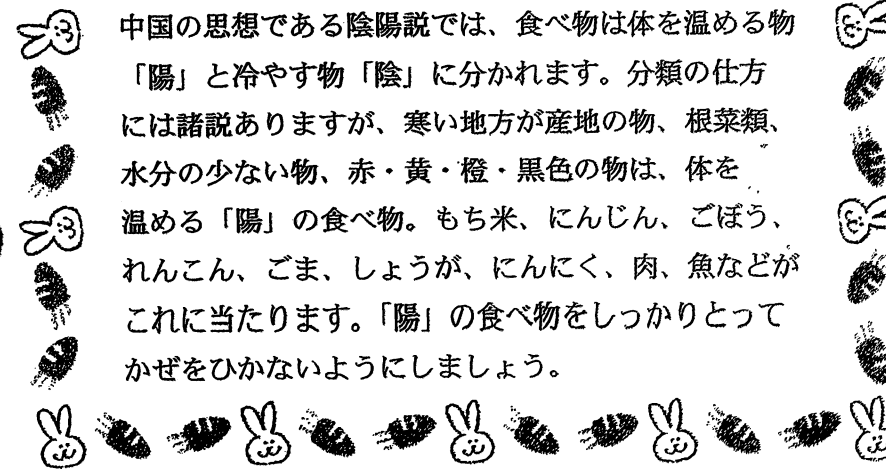 中国の思想である陰陽説では、食べ物は体を温める物
「陽」と冷やす物「陰」に分かれます。分類の仕方
には諸説ありますが、寒い地方が産地の物、根菜類、
水分の少ない物、赤・黄・橙・黒色の物は、体を
温める「陽」の食べ物。もち米、にんじん、ごぼう、
れんこん、ごま、しょうが、にんにく、肉、魚などが
これに当たります。「陽」の食べ物をしっかりとって
かぜをひかないようにしましょう。